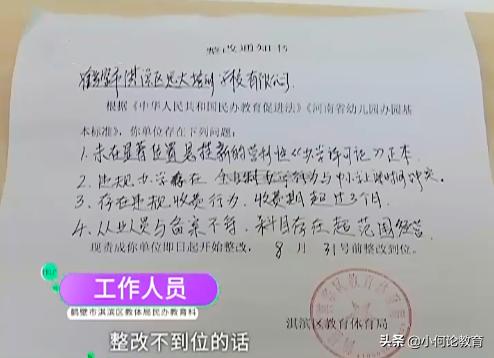 整改通知书
鹤壁市淇滨区思大培训学校有限公司
根据《中华人民共和国民办教育促进法》《河南省幼儿园办园基
本标准》,你单位存在下列问题:
1.未在显著位置悬挂新的营利性《办学许可证》正本
2.违规办学存在 行为与中小社时间冲突
3.存在违规收费行为,收费期超过3个月
4.从业人员与备案不符,科目存在超范围经营
现责成你单位即日起开始整改,8月31号前整改到位。
淇滨区教育体育局
工作人员
鹤壁市淇滨区教体局民办教育科
整改不到位的话
头条 @小何论教育